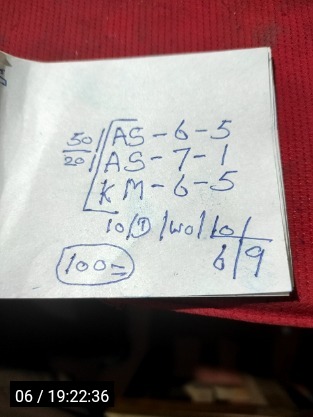 50/20 AS-6-5
AS-7-1
KM-6-5
10/
100=
6/9
06 / 19:22:36